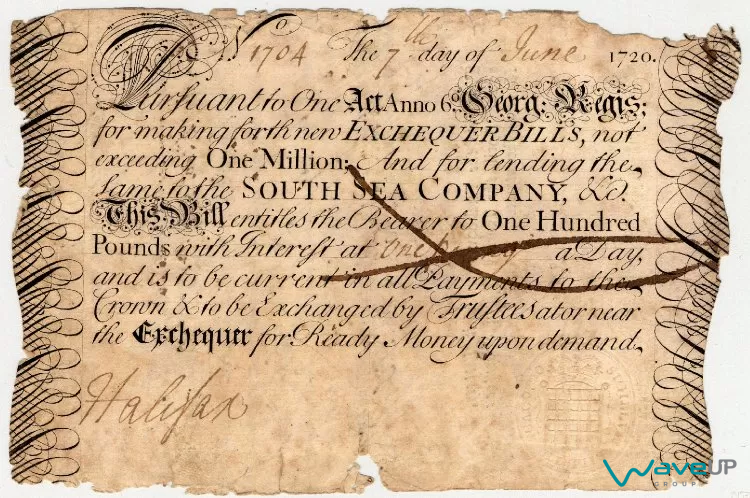 No 1704 The 7th day of June 1720.
Pursuant to One Act Anno 6o Georg: Regis;
for making forth new EXCHEQUER BILLS, not
exceeding One Million; And for lending the
same to the SOUTH SEA COMPANY, &c.
This Bill entitles the Bearer to One Hundred
Pounds with Interest at One a Day,
and is to be current in all Payments to the
Crown & to be Exchanged by Trustees at or near
the Exchequer for Ready Money upon demand.
Halifax
WaveUP
GROUP